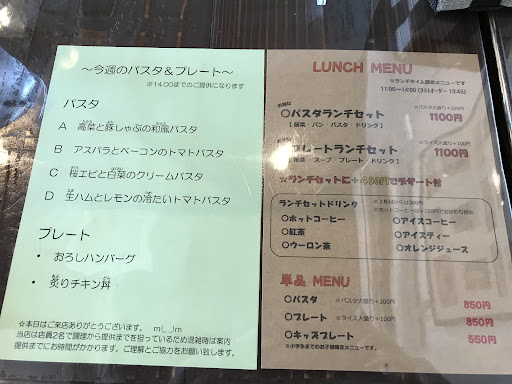 ～今週のパスタ＆プレート～
※14:00までのご提供になります
パスタ
A 高菜と豚しゃぶの和風パスタ
B アスパラとベーコンのトマトパスタ
C 桜エビと白菜のクリームパスタ
D 生ハムとレモンの冷たいトマトパスタ
プレート
・ おろしハンバーグ
・ 炙りチキン丼
☆本日はご来店ありがとうございます。 m(_ _)m
当店は店員2名で調理から提供までを担っているため混雑時は案内
提供までにお時間がかかります。ご理解とご協力をお願い致します。
LUNCH MENU
※ランチタイム限定メニューです
11:00～14:00（ラストオーダー 13:45）
※パスタ大盛り＋200円
〇パスタランチセット 1100円
【 前菜・パン・パスタ・ドリンク 】
※ライス大盛り＋100円
プレートランチセット 1100円
【 前菜・スープ・プレート・ドリンク 】
☆ランチセットに＋450円でデザート付
ランチセットドリンク ※2杯目からは300円
〇ホットコーヒー 〇アイスコーヒー
〇紅茶 〇アイスティー
〇ウーロン茶 〇オレンジジュース
単品 MENU
〇パスタ ※パスタ大盛り＋200円 850円
〇プレート ※ライス大盛り＋100円 850円
〇キッズプレート 550円
※小学生までのお子様限定メニューです。